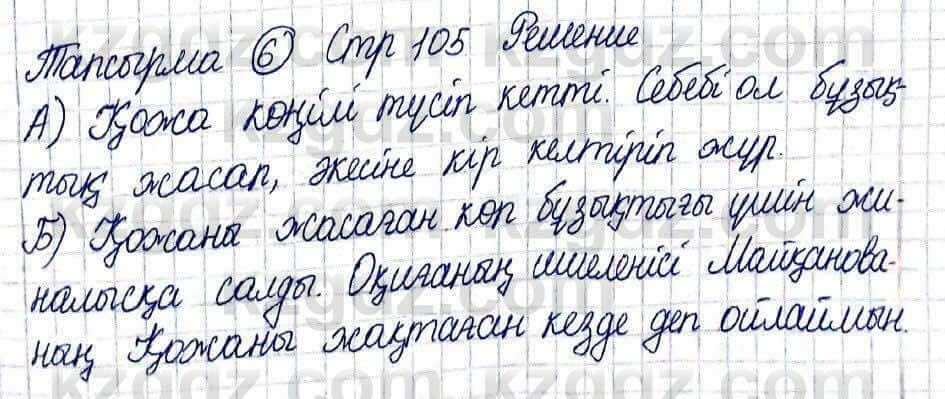 Тапсырма 6 Стр 105 Решение
А) Қожа көңілі түсіп кетті. Себебі ол бұзық-
тық жасап, әкесіне кір келтіріп жүр.
Б) Қожаны жасаған көп бұзықтығы үшін жи-
налысқа салды. Оқиғаның шиеленісі Майқанова-
ның Қожаны жақтаған кезде деп ойлаймын.